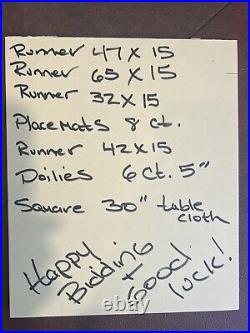 Runner 47 x 15
Runner 65 x 15
Runner 32 x 15
Placemats 8 ct.
Runner 42 x 15
Doilies 6 ct. 5"
Square 30" table
cloth
Happy
Bidding
+
Good
luck!